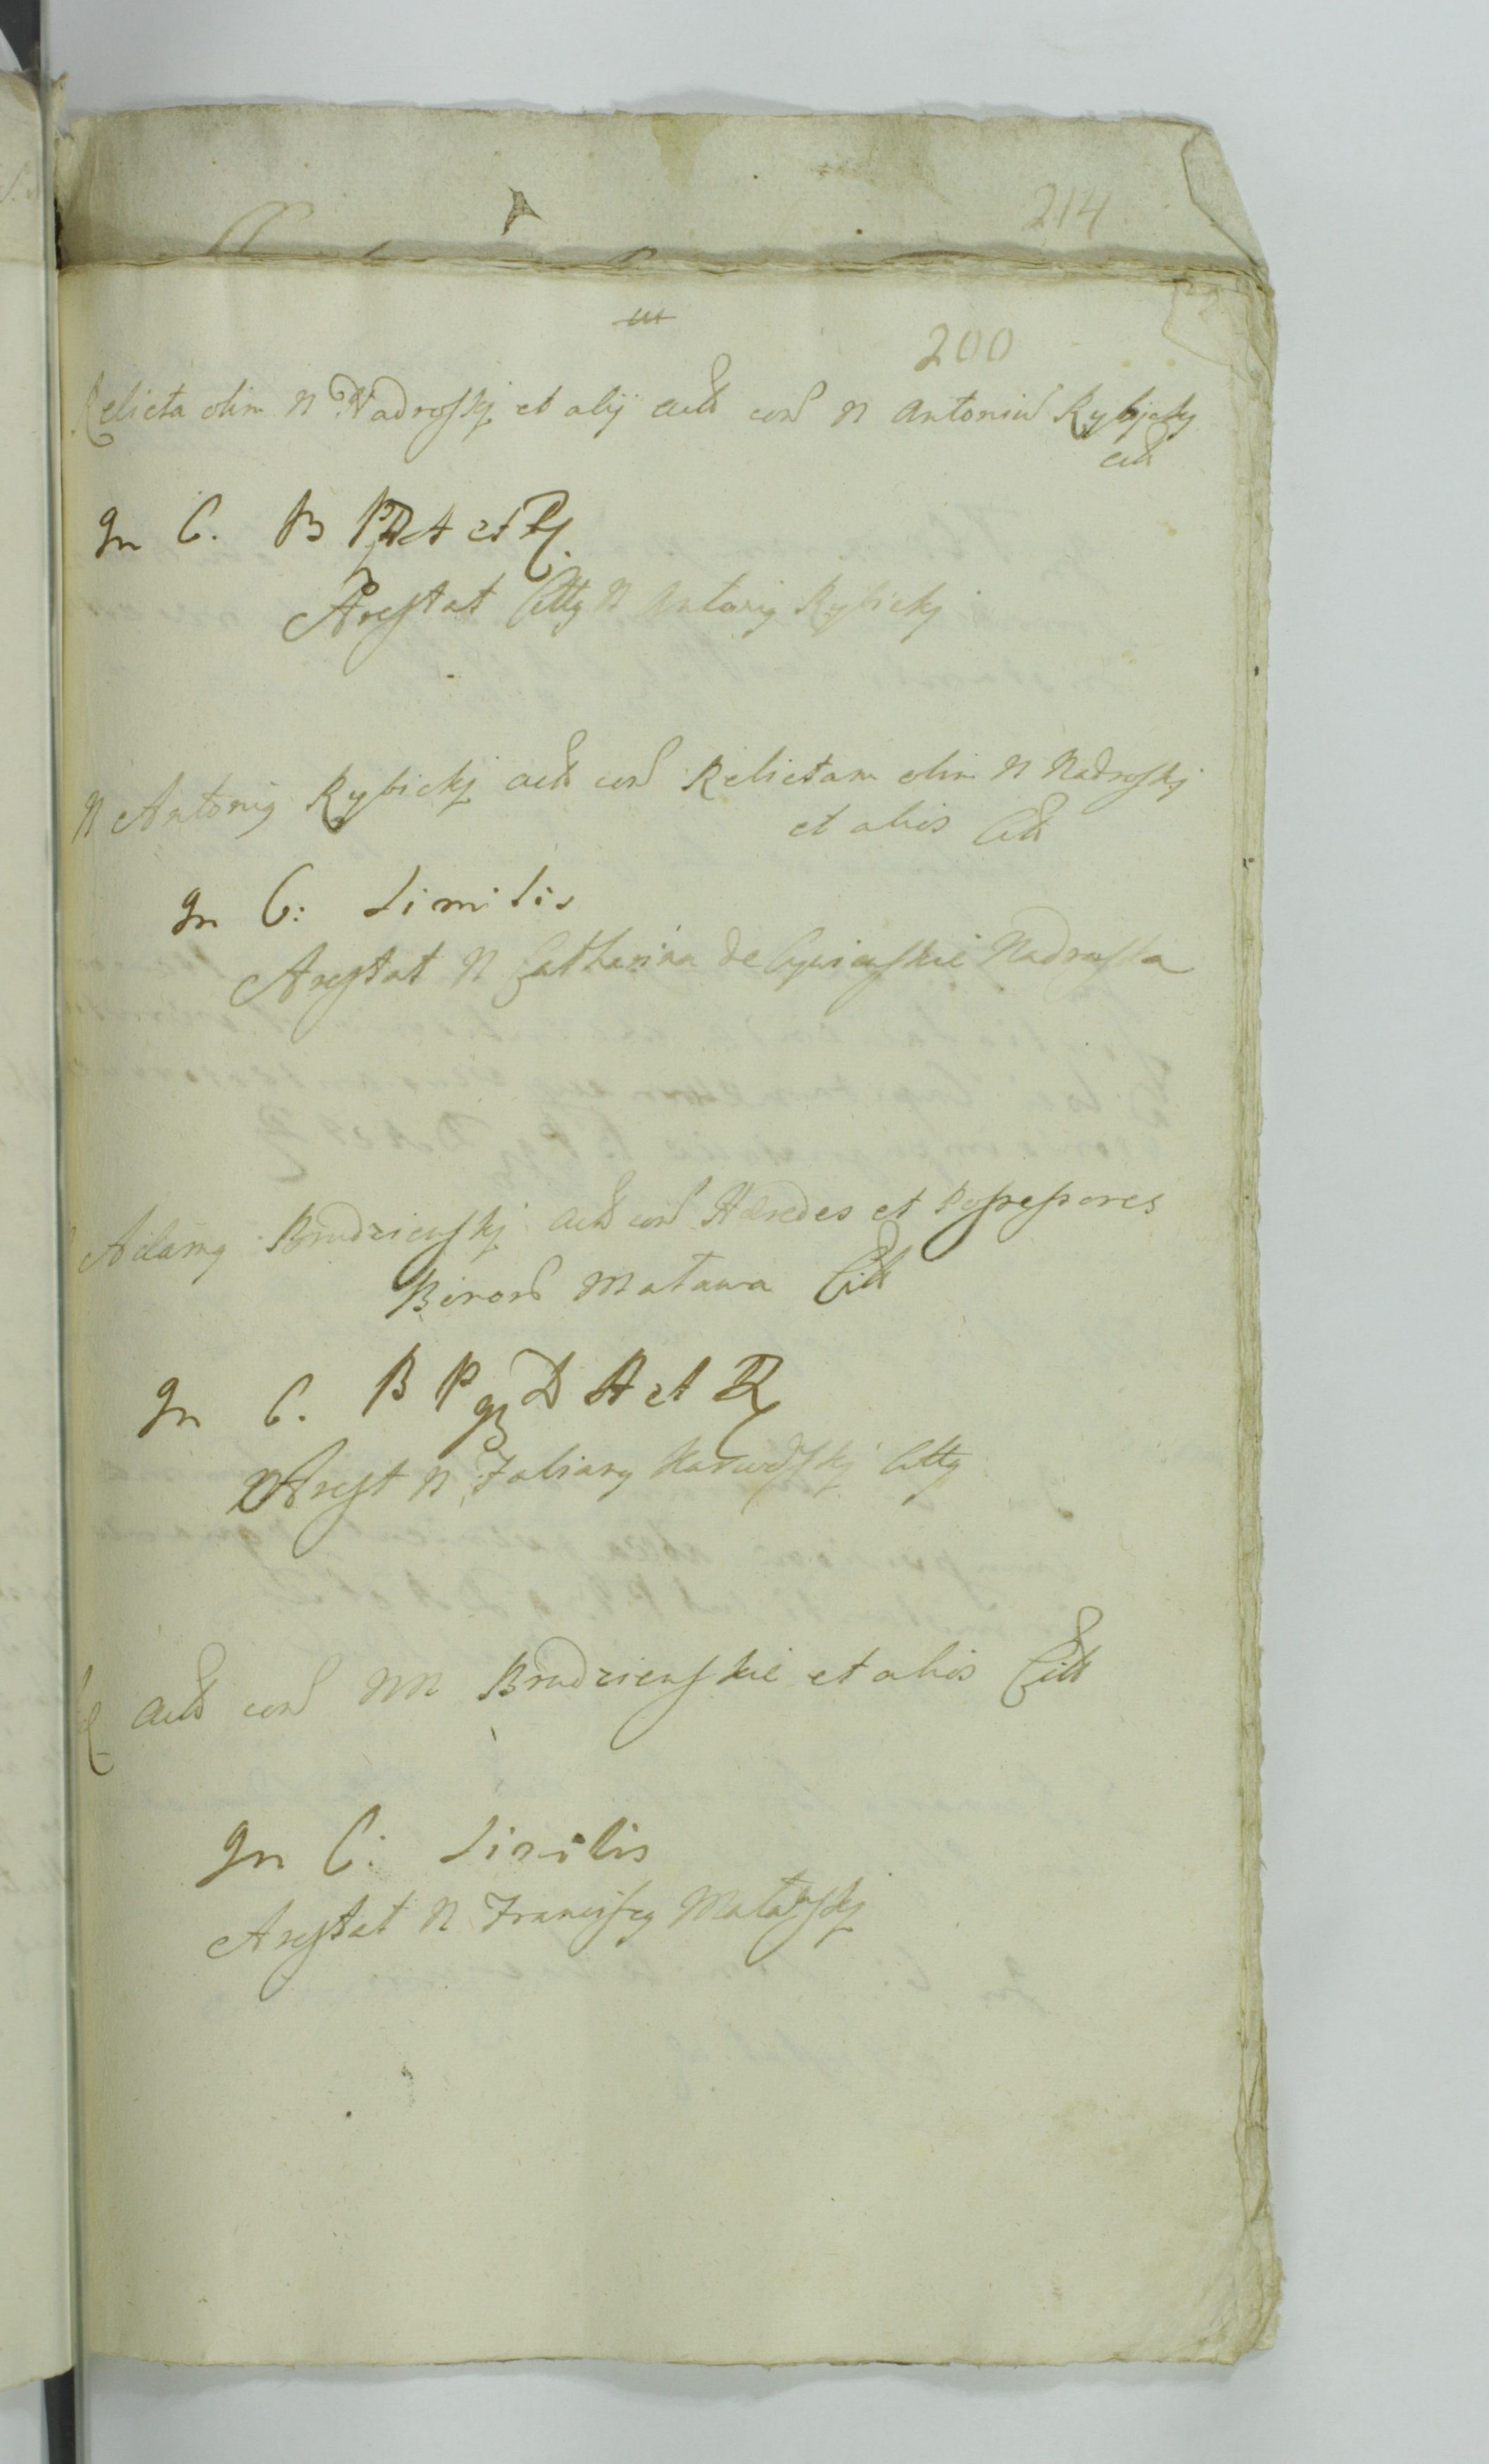 214
200
Relicta olim N Nadroskj et alij actt con N Antoniu Rybicky
citt
In C. B P D A et R
Arestat Citty N Antonij Rybickj
N Antonig Rybickj actt con Relictam olim N Nadroskj
et alios Citt
In C: Similis
Arestat N Catharina de Nadroska
Adamg Brudzienskj actt con Hæredes et Possessores
Bonor Matawa Citt
In C. B P D A et R
Arest N Fabiang Citty
actt con NN Brudzienskie et alios Citt
In C: Similis
Arestat N Francisg Matawskj